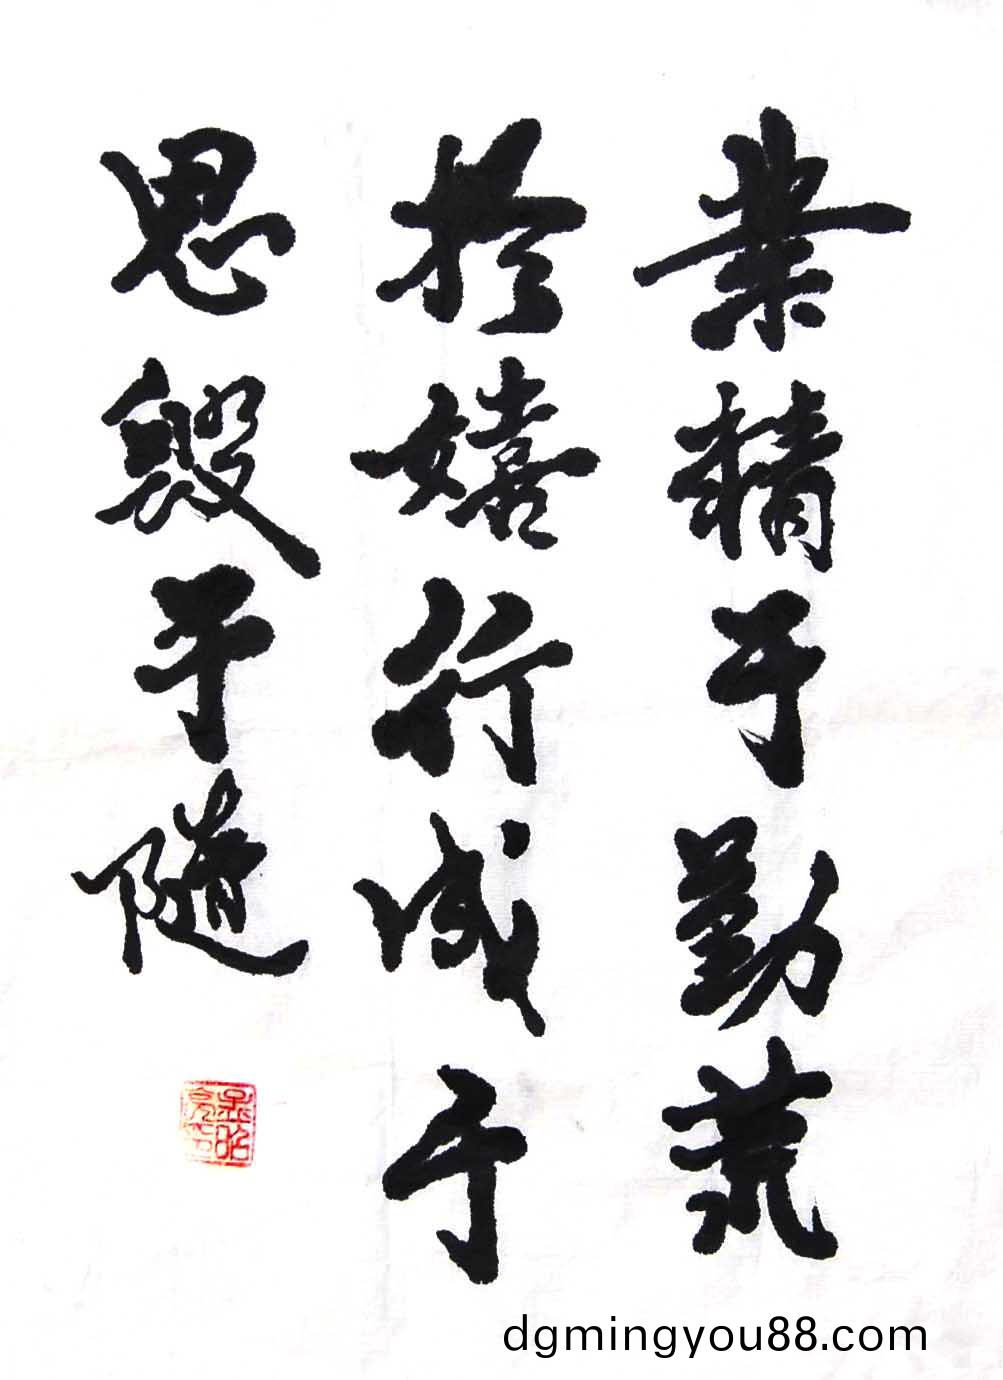 業精于勤荒
於嬉行成于
思毁于随
dgmingyou88.com